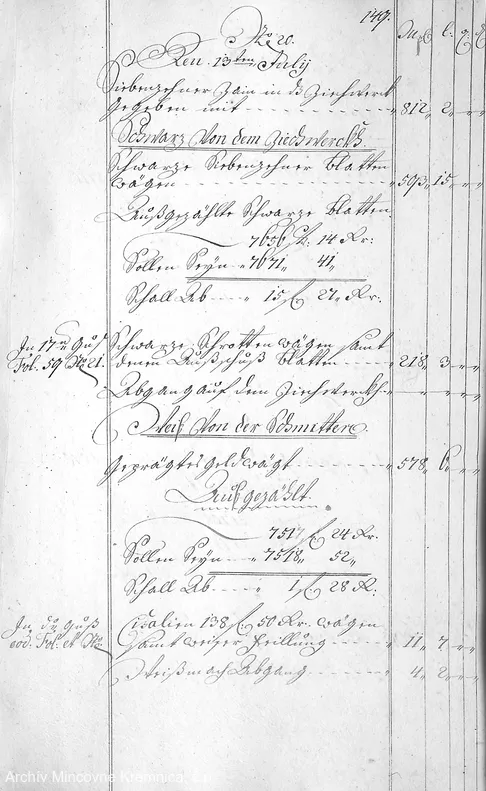 149.
No 20.
Den 13ten July
M l: q: d
Siebenzehner Zain in ds Ziechwerck
gegeben mit - - - „ 812„ 2„ „ „
Schwarz Von dem Ziechwerckh
Schwarze Siebenzehner blatten
wägen - - - „ 593„ 15„ „ „
Außgezählte Schwarze blatten
7656 f. 14 Kr:
Sollen Seyn „ 7671„ 41„
Schall Ab - - - 15 f. 27„ Kr:
In 17ten Guß
Fol. 59 No 21.
Schwarze Schrotten wägen samt
denen Außschuß blatten - - - „ 218„ 3„ „ „
Abgang auf dem Ziechwerckh - „ „ „ „
Weiß Von der Schmitten
Geprägtes geld wägt - - - „ 578„ 6„ „ „
Außgezählt.
7517 f. 24 Kr.
Sollen Seyn „ 7518„ 52„
Schall Ab - - - „ 1 f: 28 K:
In Guß
eod. Fol. et No
Cisalien 138 f. 50 Kr. wägen
samt weiser Feillung - - - „ 11„ 7„ „ „
Weißmach Abgang - - - „ 4„ 2„ „ „
Archív Mincovne Kremnica,